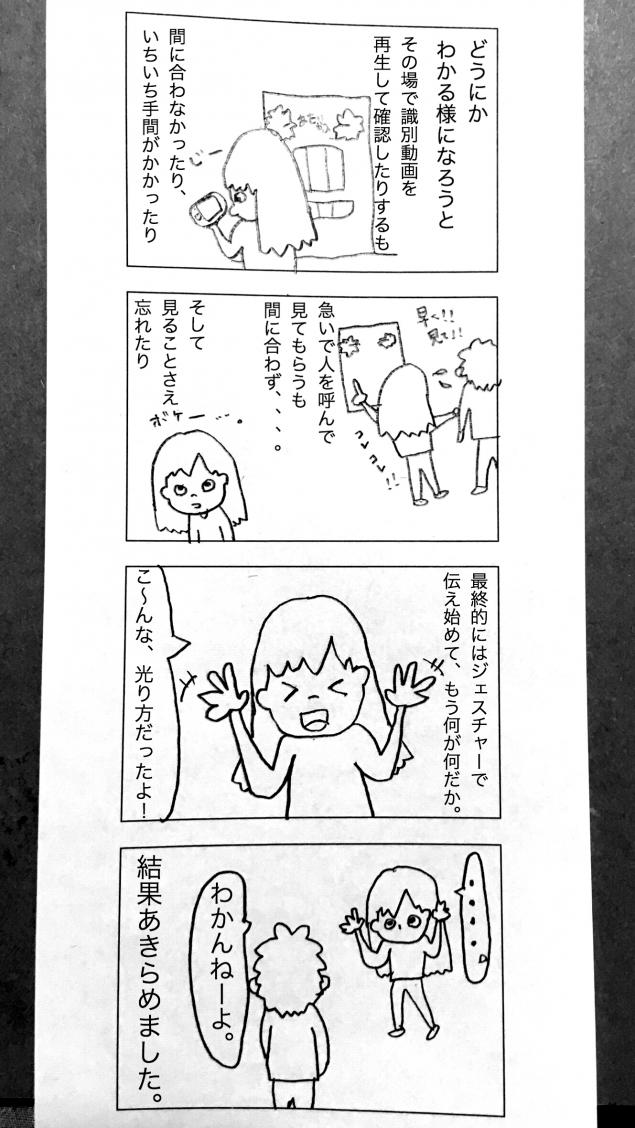 どうにか
わかる様になろうと
その場で識別動画を
再生して確認したりするも
間に合わなかったり、
いちいち手間がかかったり
じー
早く!!
見て!!
コレコレ!!
急いで人を呼んで
見てもらうも
間に合わず、、、。
そして
見ることさえ
忘れたり
ボケー…。
最終的にはジェスチャーで
伝え始めて、もう何が何だか。
こ〜んな、光り方だったよ!
わかんねーよ。
結果あきらめました。